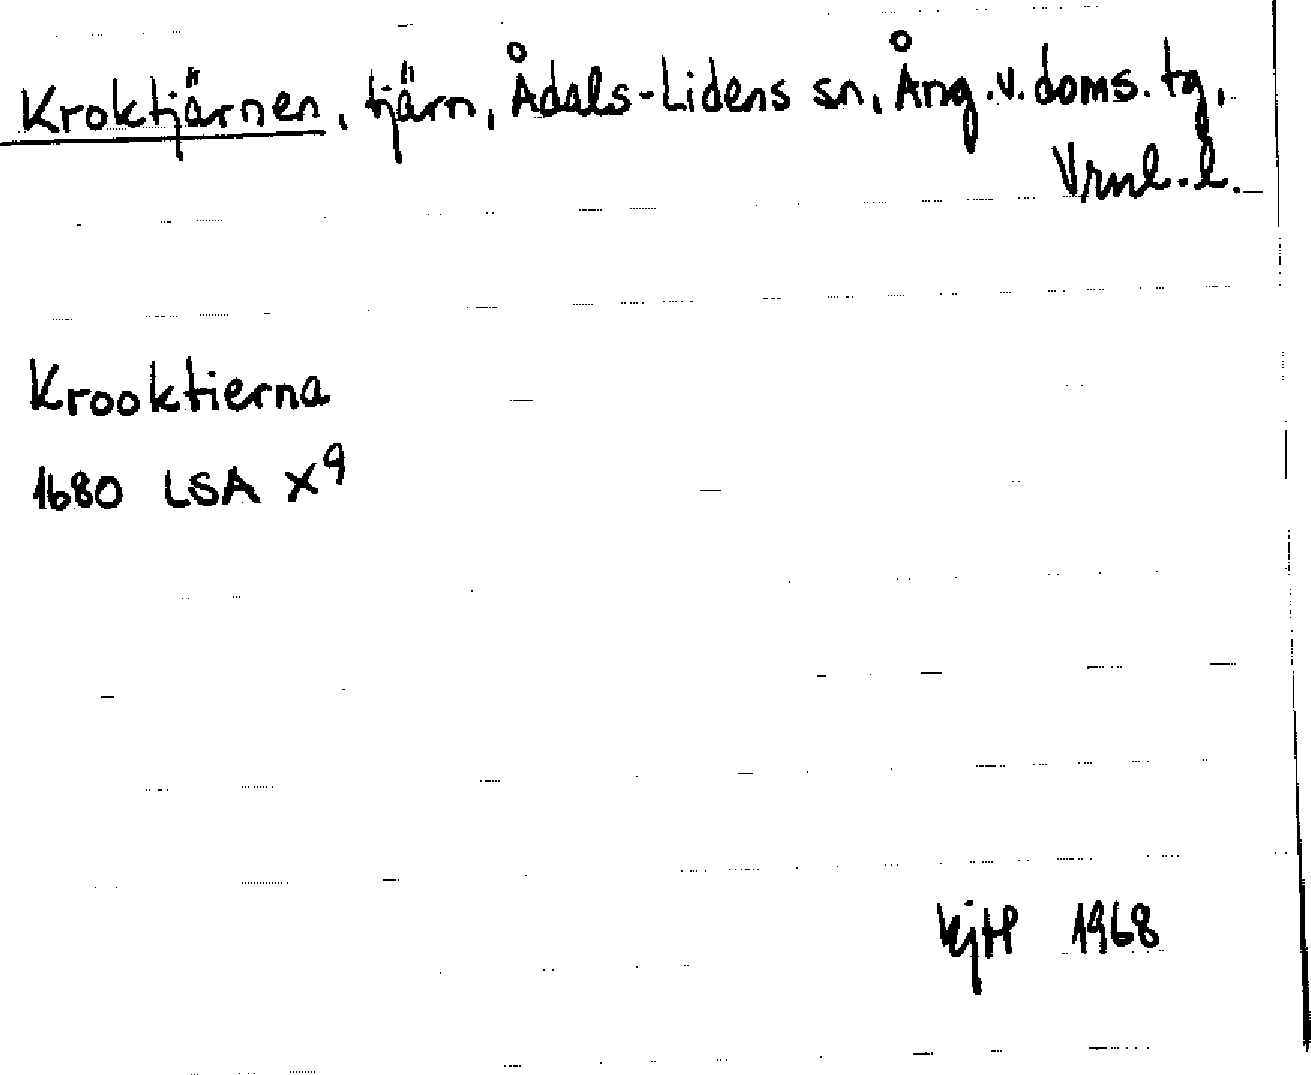 Kroktjärnen, tjärn, Ådals-Lidens sn, Ång.v.doms.tg,
Vrnl.l.
Krooktierna
1680 LSA X⁹
KjHP 1968